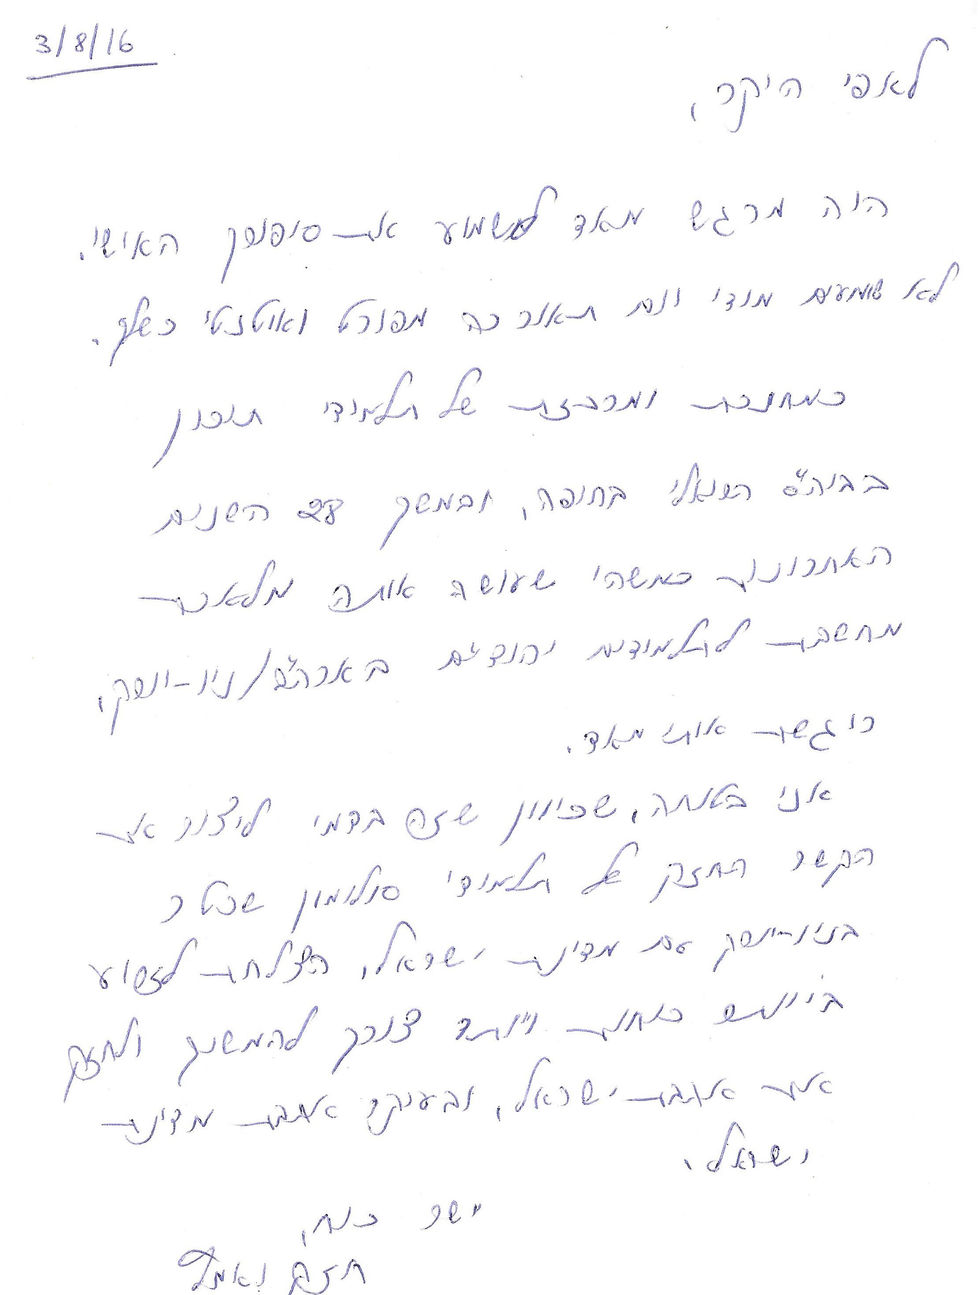 3/8/16
לאפי היקר,
היה מרגש מאד לשמוע את סיפורך האישי.
לא שומעים מידי יום תאור כה מפורט ואוטנטי כשלך.
כמחנכת ומרכזת של תלמידי תיכון
בביה"ס הריאלי בחיפה, ובמשך 28 השנים
האחרונות כמשהי שעושה אותה מלאכת
מחשבת לתלמידים יהודים בארה"ב/ניו-יורק,
ריגשת אותי מאד.
אני בטוחה, שכיוון שזה בדמי ליצור את
הקשר החזק של תלמידי סולומון שכטר
בניו-יורק עם מדינת ישראל, הצלחת לזרוע
בי יותר כוחות ויותר צורך להמשיך ולחזק
את אהבת ישראל, ובעיקר אהבת מדינת
ישראל.
יישר כוח,
חזק ואמץ